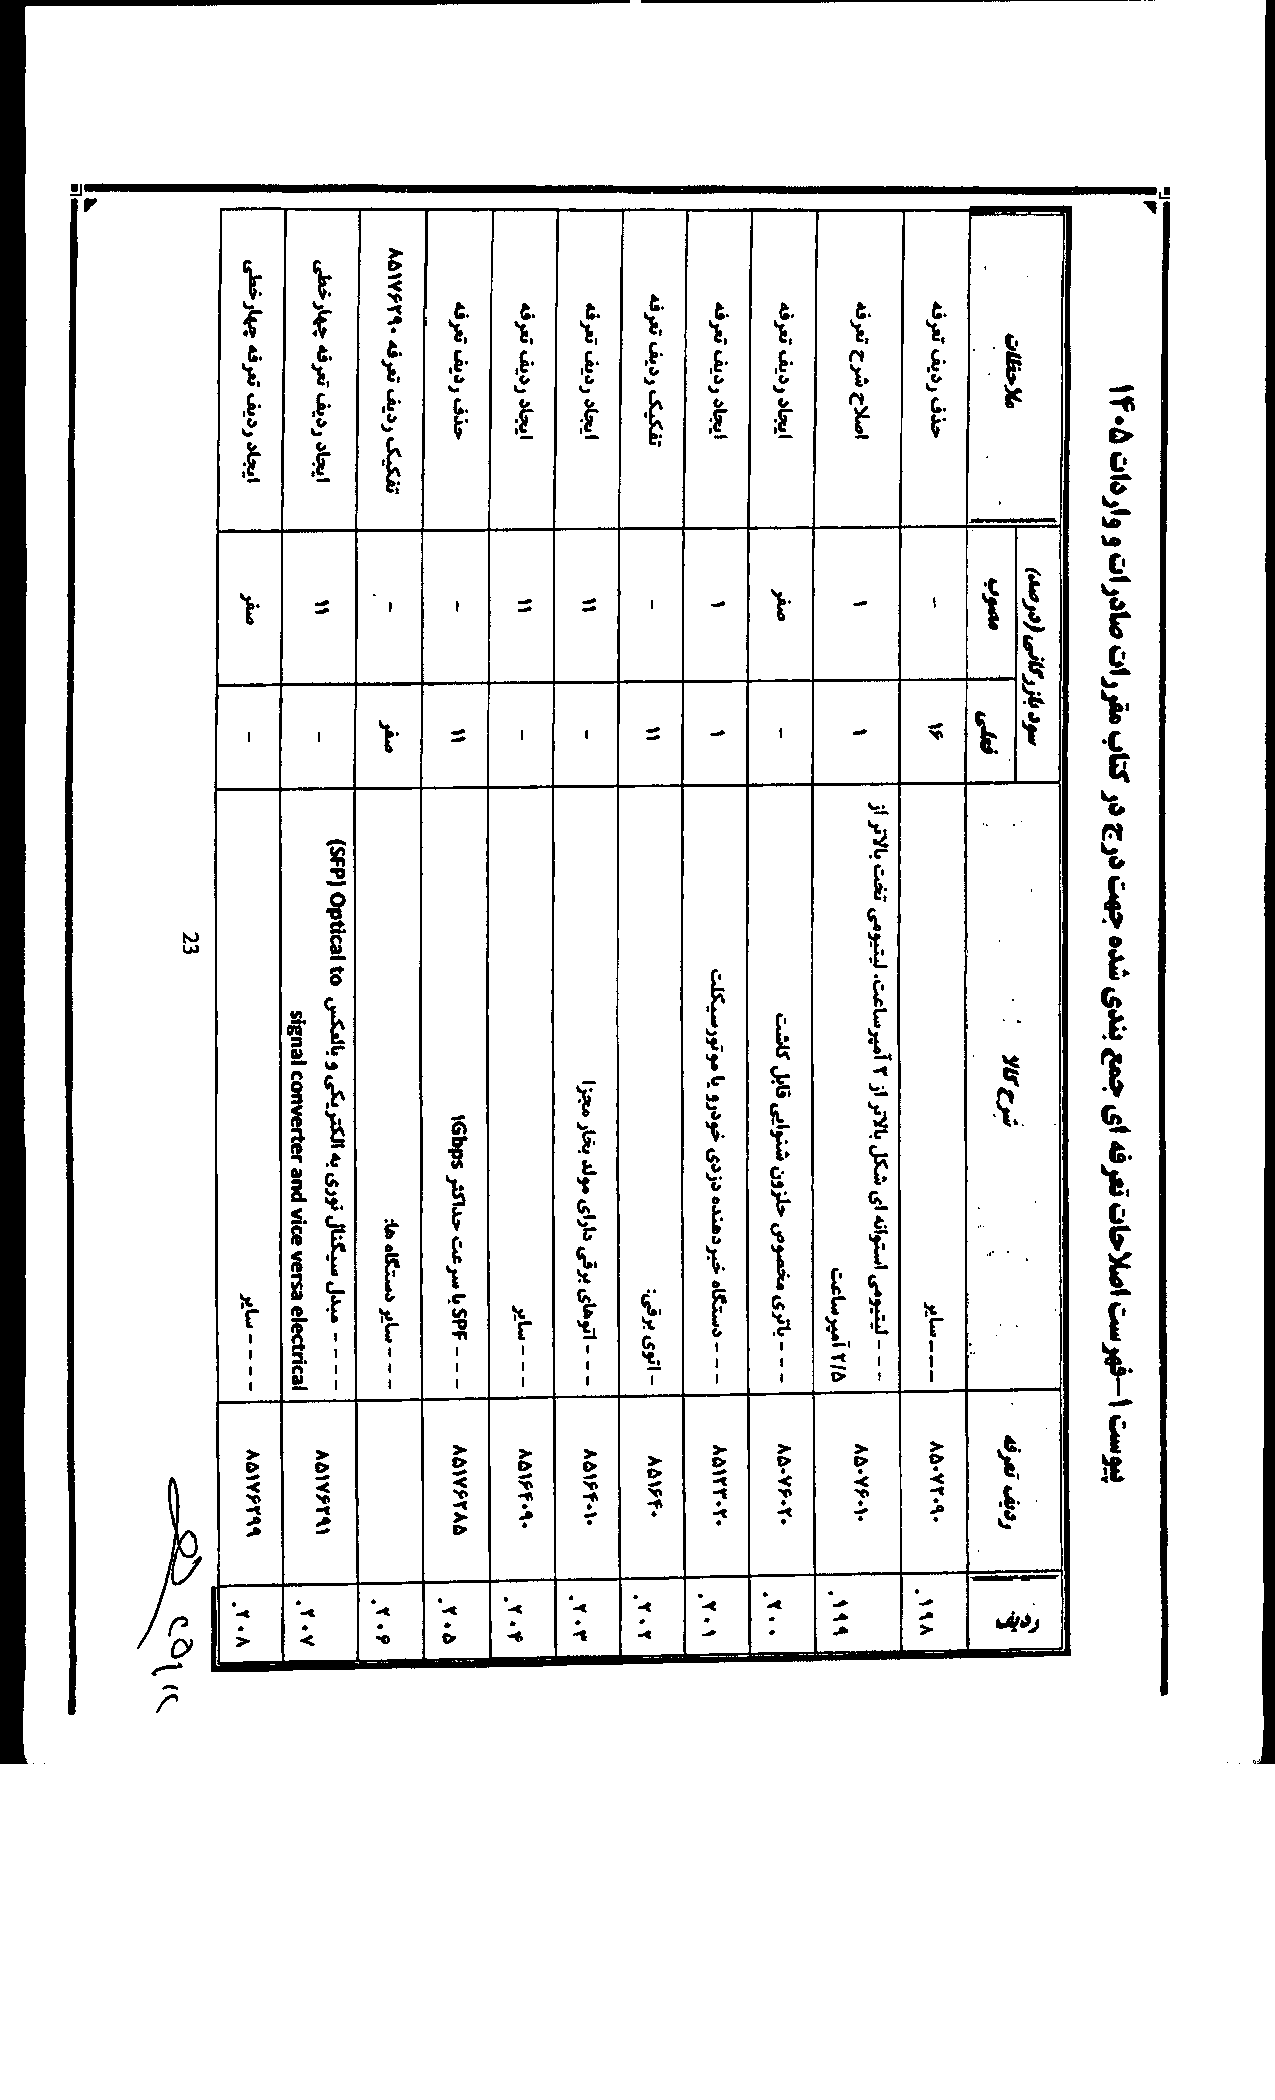 پیوست ۱-فهرست اصلاحات تعرفه ای جمع بندی شده جهت درج در کتاب مقررات صادرات و واردات ۱۴۰۵
ردیف | ردیف تعرفه | شرح کالا | سود بازرگانی (درصد) | ملاحظات
فعلی | مصوب
.۱۹۸ | ۸۵۰۷۲۰۹۰ | ---سایر | ۱۶ | - | حذف ردیف تعرفه
.۱۹۹ | ۸۵۰۷۶۰۱۰ | - - - لیتیومی استوانه ای شکل بالاتر از ۲ آمپرساعت، لیتیومی تخت بالاتر از
۲/۵ آمپر ساعت | ۱ | ۱ | اصلاح شرح تعرفه
.۲۰۰ | ۸۵۰۷۶۰۲۰ | - - - باتری مخصوص حلزون شنوایی قابل کاشت | - | صفر | ایجاد ردیف تعرفه
.۲۰۱ | ۸۵۱۲۳۰۲۰ | - - - دستگاه خبر دهنده دزدی خودرو یا موتورسیکلت | ۱ | ۱ | ایجاد ردیف تعرفه
.۲۰۲ | ۸۵۱۶۴۰ | -اتوی برقی: | ۱۱ | - | تفکیک ردیف تعرفه
.۲۰۳ | ۸۵۱۶۴۰۱۰ | - - - اتوهای برقی دارای مولد بخار مجزا | - | ۱۱ | ایجاد ردیف تعرفه
.۲۰۴ | ۸۵۱۶۴۰۹۰ | - - - سایر | - | ۱۱ | ایجاد ردیف تعرفه
.۲۰۵ | ۸۵۱۷۶۲۸۵ | - - - SPF با سرعت حداکثر ۱Gbps | ۱۱ | - | حذف ردیف تعرفه
.۲۰۶ | - - - سایر دستگاه ها: | صفر | - | تفکیک ردیف تعرفه ۸۵۱۷۶۲۹۰
.۲۰۷ | ۸۵۱۷۶۲۹۱ | - - - - مبدل سیگنال نوری به الکتریکی و بالعکس (SFP) Optical to
signal converter and vice versa electrical | - | ۱۱ | ایجاد ردیف تعرفه چهار خطی
.۲۰۸ | ۸۵۱۷۶۲۹۹ | - - - - سایر | - | صفر | ایجاد ردیف تعرفه چهار خطی
23